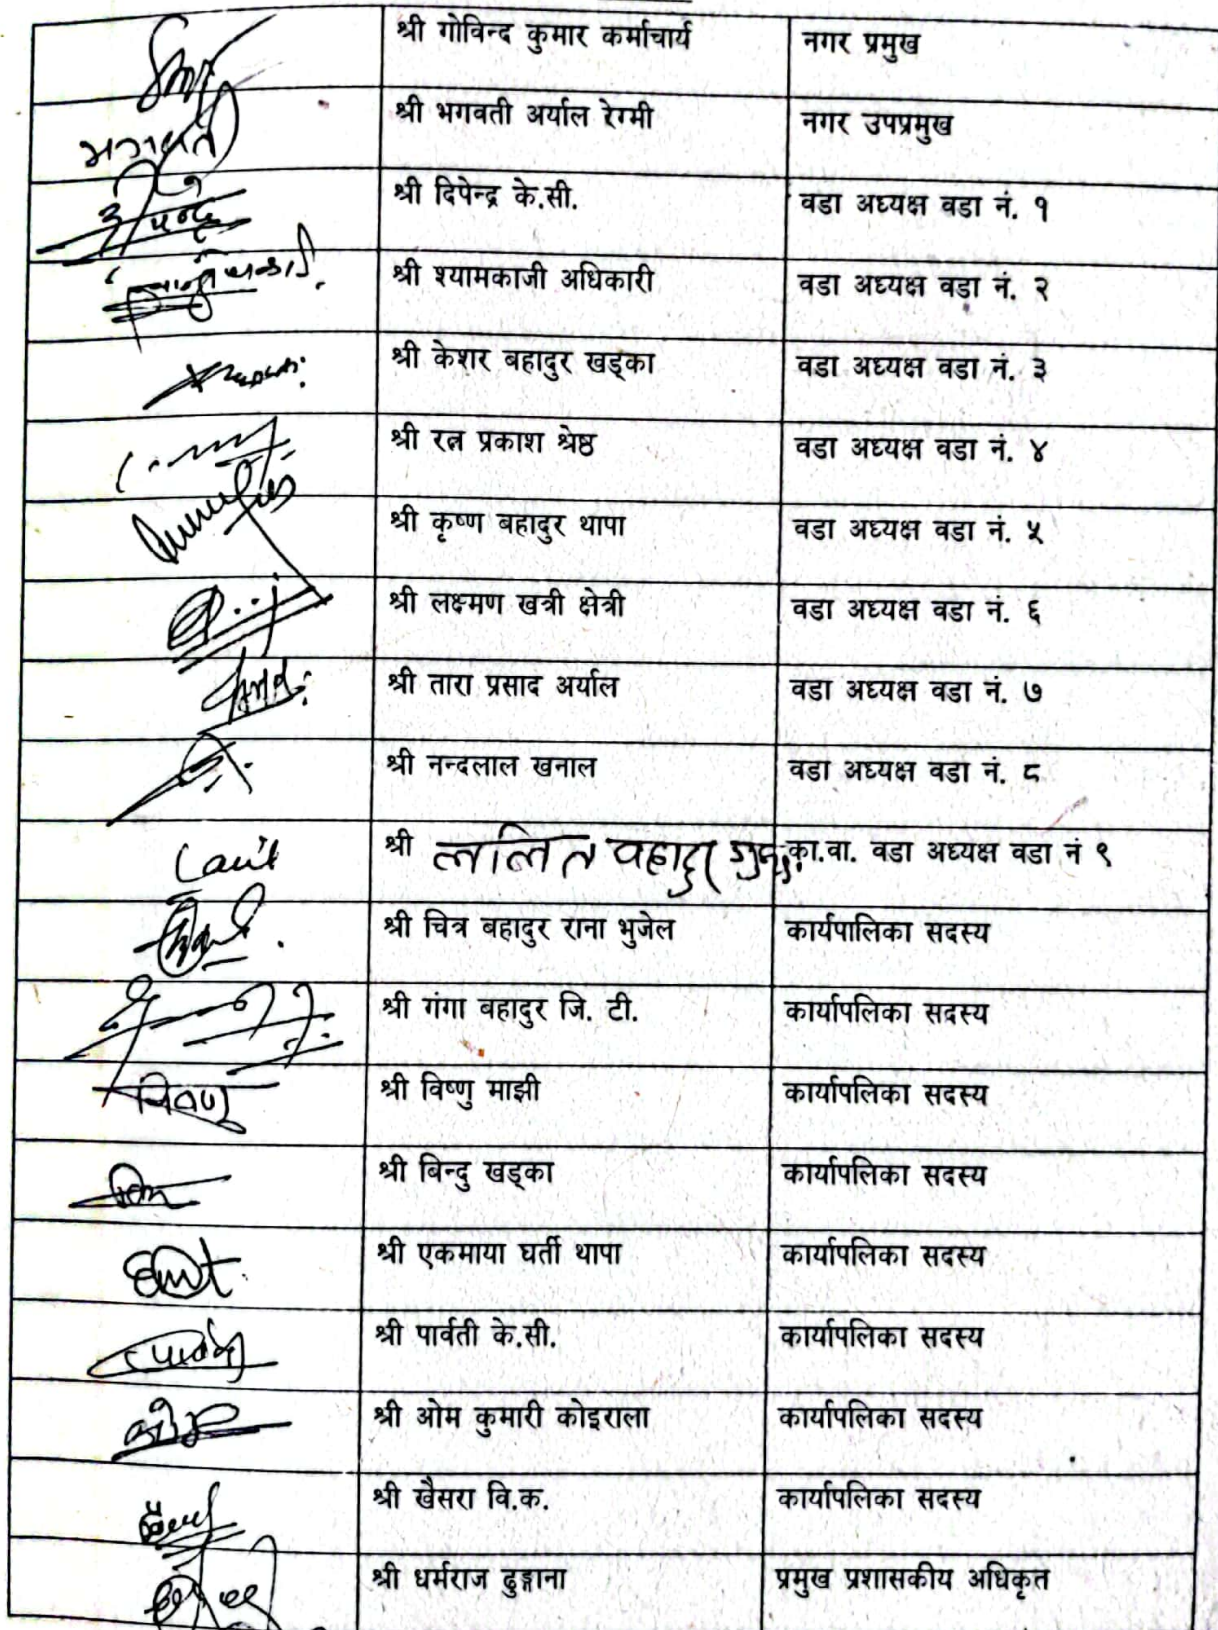 श्री गोविन्द कुमार कर्माचार्य नगर प्रमुख
भगवती श्री भगवती अर्याल रेग्मी नगर उपप्रमुख
श्री दिपेन्द्र के.सी. वडा अध्यक्ष वडा नं. १
श्री श्यामकाजी अधिकारी वडा अध्यक्ष वडा नं. २
श्री केशर बहादुर खड्का वडा अध्यक्ष वडा नं. ३
श्री रत्न प्रकाश श्रेष्ठ वडा अध्यक्ष वडा नं. ४
श्री कृष्ण बहादुर थापा वडा अध्यक्ष वडा नं. ५
श्री लक्ष्मण खत्री क्षेत्री वडा अध्यक्ष वडा नं. ६
श्री तारा प्रसाद अर्याल वडा अध्यक्ष वडा नं. ७
श्री नन्दलाल खनाल वडा अध्यक्ष वडा नं. ८
श्री ललित वहादुर का.वा. वडा अध्यक्ष वडा नं ९
श्री चित्र बहादुर राना भुजेल कार्यपालिका सदस्य
श्री गंगा बहादुर जि. टी. कार्यापलिका सदस्य
श्री विष्णु माझी कार्यापलिका सदस्य
श्री बिन्दु खड्का कार्यापलिका सदस्य
श्री एकमाया घर्ती थापा कार्यापलिका सदस्य
श्री पार्वती के.सी. कार्यापलिका सदस्य
श्री ओम कुमारी कोइराला कार्यापलिका सदस्य
श्री खैसरा वि.क. कार्यापलिका सदस्य
श्री धर्मराज ढुङ्गाना प्रमुख प्रशासकीय अधिकृत